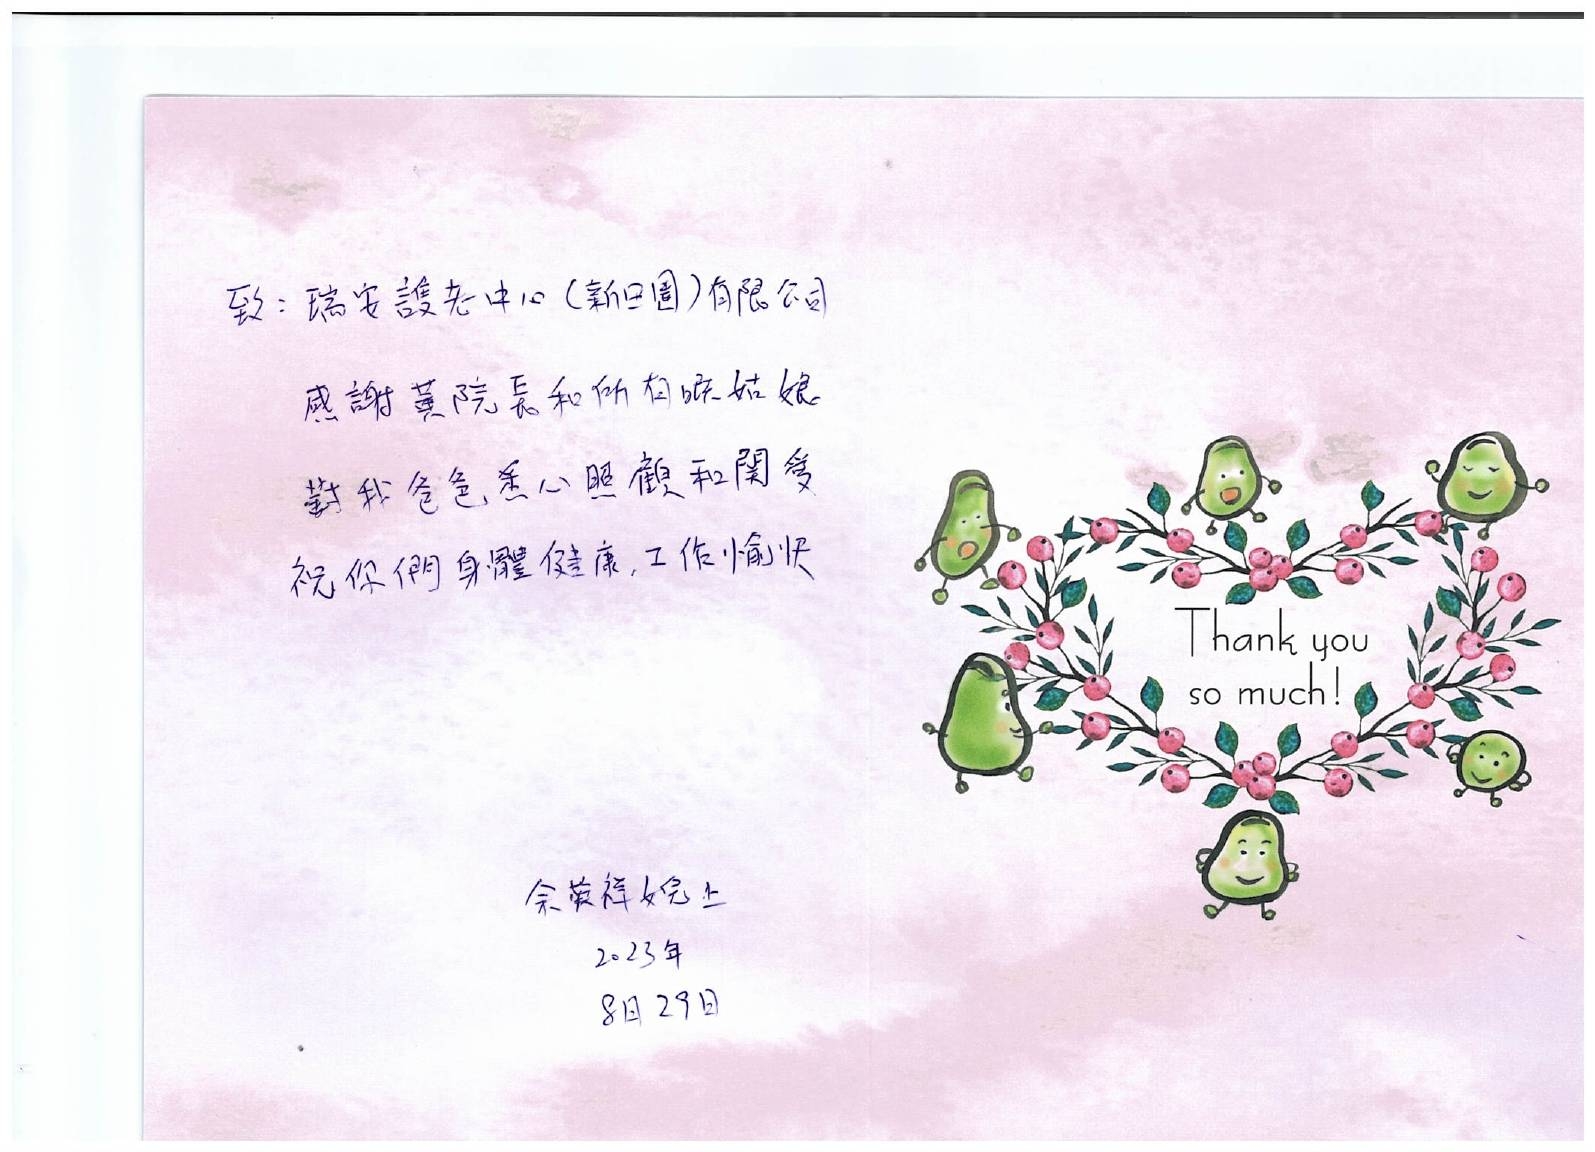 致：瑞安護老中心（新田圍）有限公司
感謝黃院長和所有嘅姑娘
對我爸爸悉心照顧和關愛
祝你們身體健康，工作愉快
Thank you
so much!
余英祥女兒上
2023年
8月29日